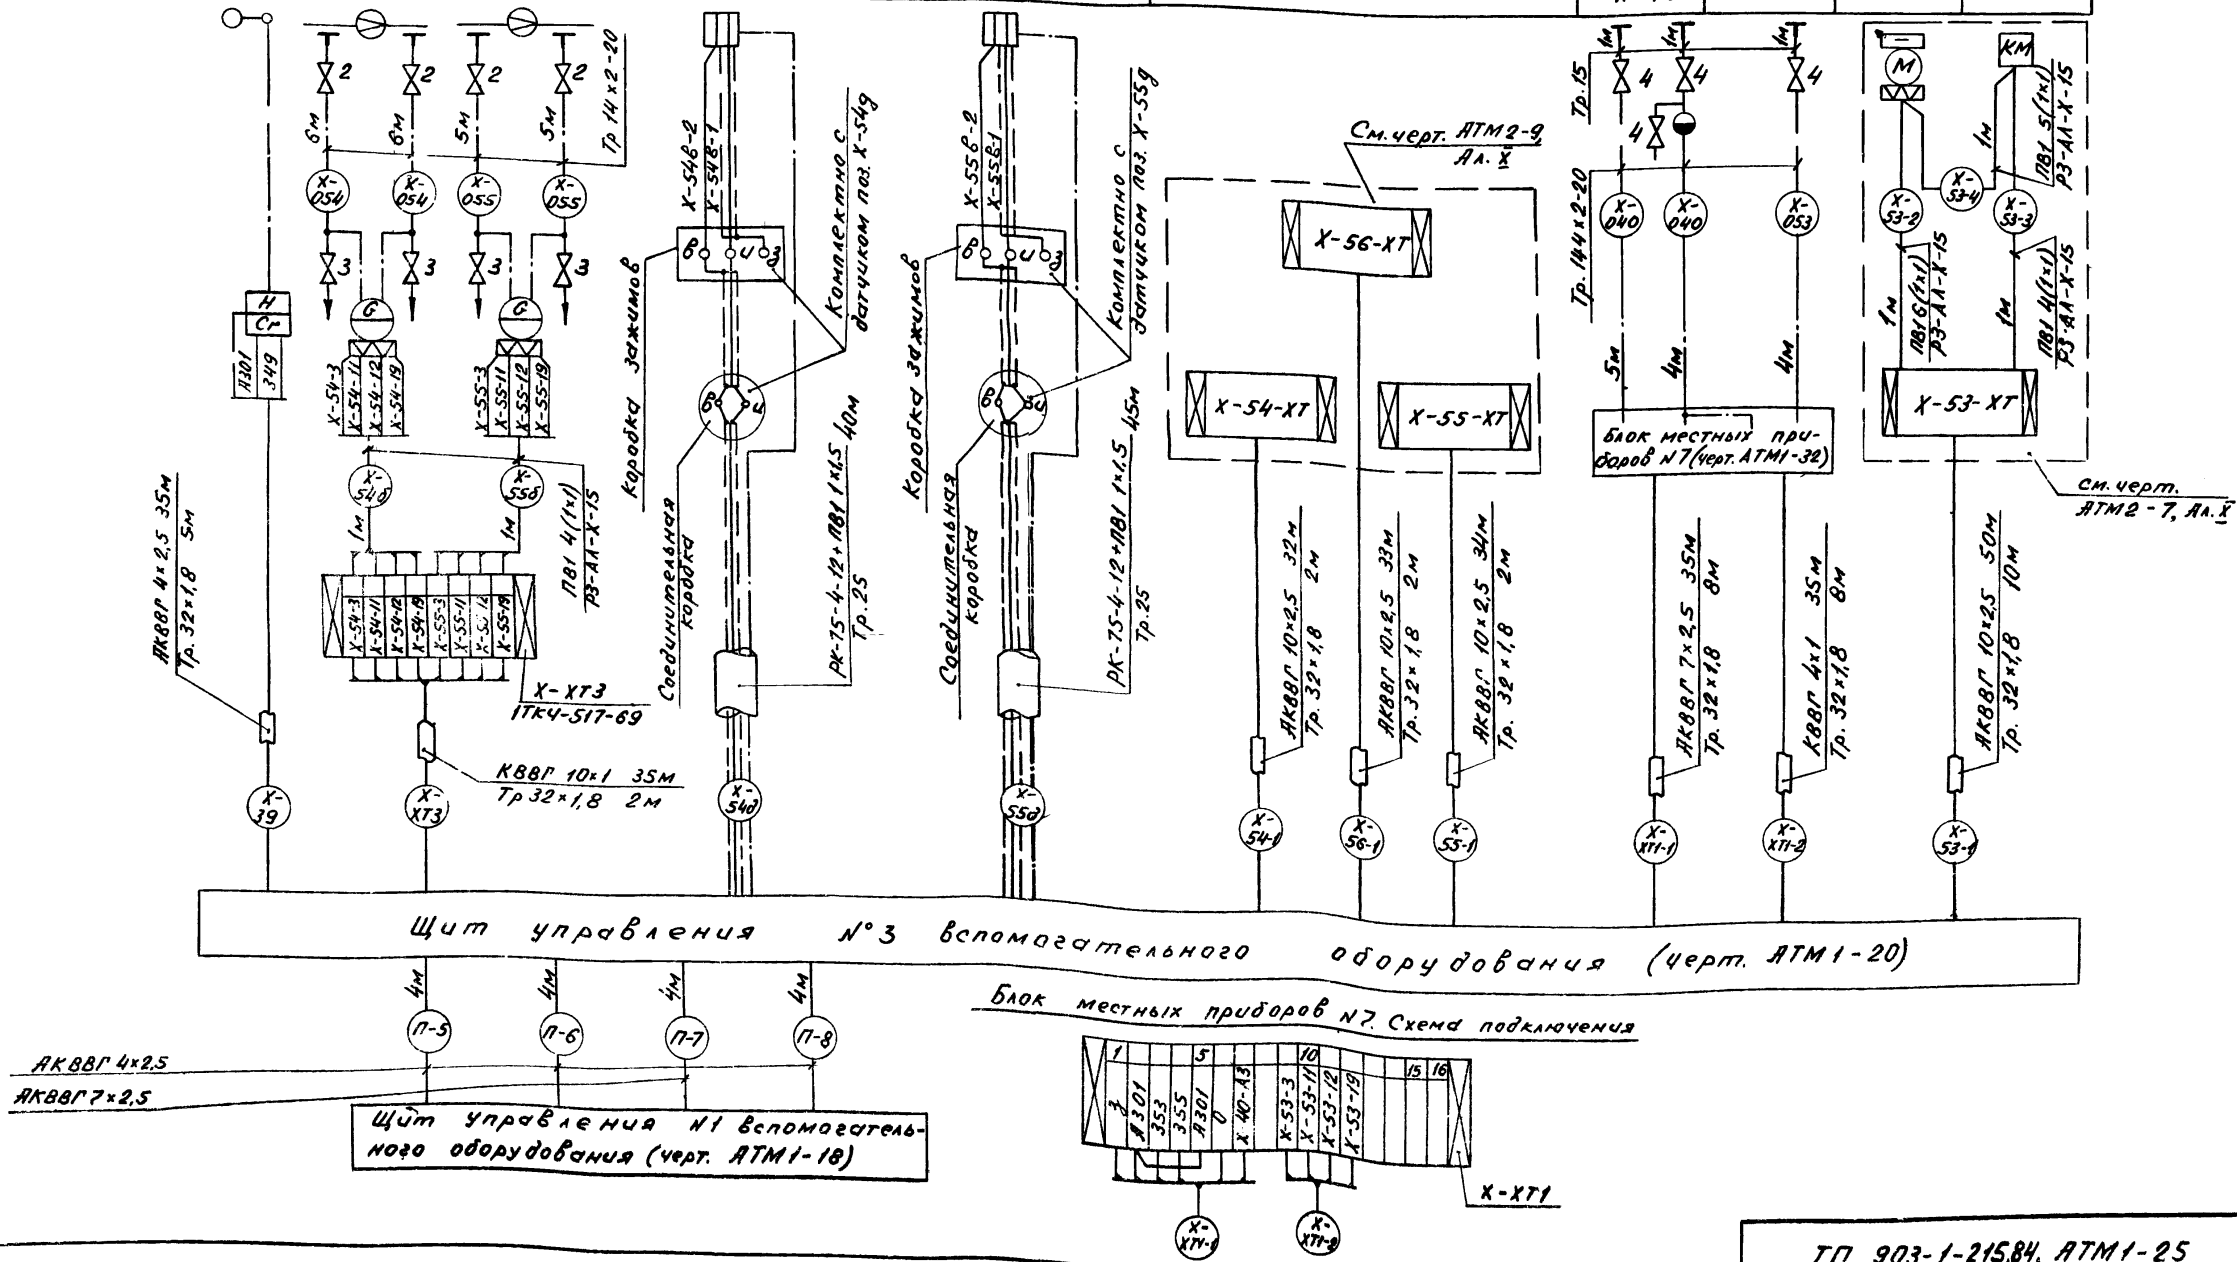 2
2
2
2
6м
6м
5м
5м
Тр 14×2-20
X-
054
X-
054
X-
055
X-
055
3
3
3
3
Н
Сг
А301
349
G
G
X-54-3
X-54-11
X-54-12
X-54-19
X-55-3
X-55-11
X-55-12
X-55-19
X-
54б
X-
55б
1м
1м
ПВ1 4(1×1)
РЗ-АЛ-Х-15
X-54-3
X-54-11
X-54-12
X-54-19
X-55-3
X-55-11
X-55-19
X-ХТ3
1ТКЧ-517-69
АКВВГ 4×2,5 35м
Тр. 32×1,8 5м
КВВГ 10×1 35м
Тр 32×1,8 2м
X-
39
X-
ХТ3
X-54в-2
X-54в-1
в
и
З
Коробка зажимов
Комплектно с
датчиком поз. X-54д
в
и
Соединительная
коробка
РК-75-4-12+ПВ1 1×1,5 40м
Тр.25
X-
54д
X-55в-2
X-55в-1
в
и
З
Коробка зажимов
Комплектно с
датчиком поз. X-55д
в
и
Соединительная
коробка
РК-75-4-12+ПВ1 1×1,5 45м
Тр.25
X-
55д
См. черт. АТМ2-9,
Ал. X
X-56-ХТ
X-54-ХТ
X-55-ХТ
АКВВГ 10×2,5 32м
Тр. 32×1,8 2м
АКВВГ 10×2,5 33м
Тр. 32×1,8 2м
АКВВГ 10×2,5 34м
Тр. 32×1,8 2м
X-
54-1
X-
56-1
X-
55-1
1м
1м
1м
Тр. 15
4
4
4
4
Тр. 14×2-20
X-
040
X-
040
X-
053
5м
4м
4м
Блок местных при-
боров №7 (черт. АТМ1-32)
АКВВГ 7×2,5 35м
Тр. 32×1,8 8м
КВВГ 4×1 35м
Тр. 32×1,8 8м
X-
ХТ1-1
X-
ХТ1-2
М
КМ
1м
ПВ1 5(1×1)
РЗ-АЛ-Х-15
X-
53-2
X-
53-4
X-
53-3
1м
ПВ1 6(1×1)
РЗ-АЛ-Х-15
1м
ПВ1 4(1×1)
РЗ-АЛ-Х-15
X-53-ХТ
см. черт.
АТМ2-7, Ал. X
АКВВГ 10×2,5 50м
Тр. 32×1,8 10м
X-
53-1
Щит управления №3 вспомогательного оборудования (черт. АТМ1-20)
4м
4м
4м
4м
П-5
П-6
П-7
П-8
АКВВГ 4×2,5
АКВВГ 7×2,5
Щит управления №1 вспомогатель-
ного оборудования (черт. АТМ1-18)
Блок местных приборов №7. Схема подключения
1
5
10
15
16
З
А301
353
355
А301
0
X-40-А3
X-53-3
X-53-11
X-53-12
X-53-19
X-ХТ1
X-
ХТ1-1
X-
ХТ1-2
ТП 903-1-215.84. АТМ1-25